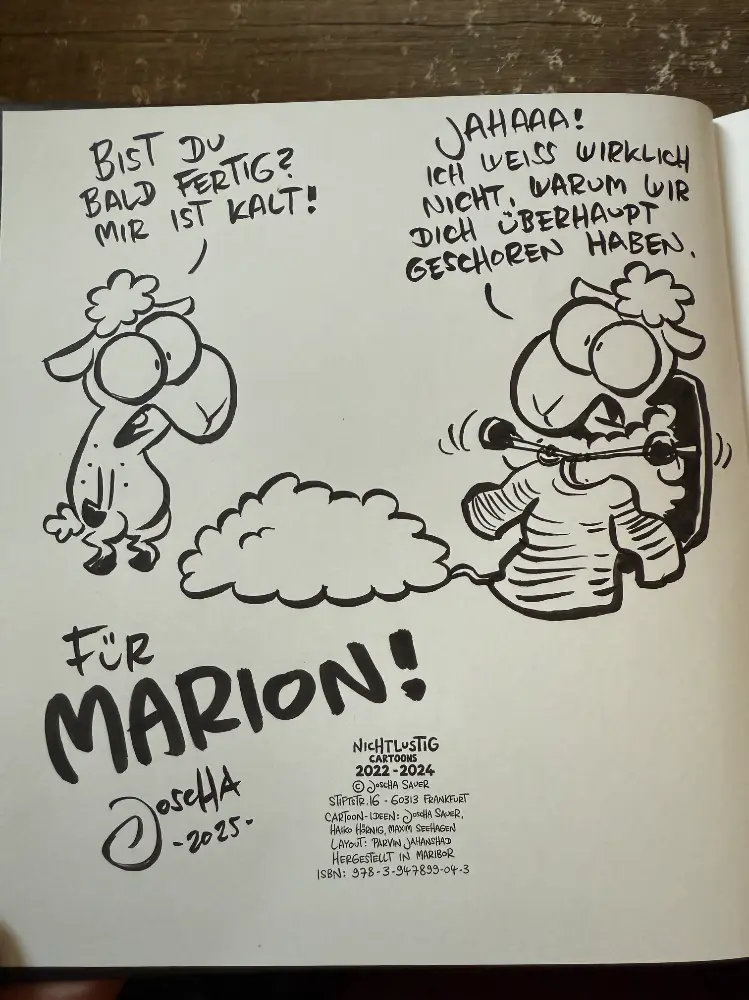 BIST DU
BALD FERTIG?
MIR IST KALT!
JAHAAA!
ICH WEISS WIRKLICH
NICHT, WARUM WIR
DICH ÜBERHAUPT
GESCHOREN HABEN.
FÜR
MARION!
JOSCHA
-2025-
NICHTLUSTIG
CARTOONS
2022-2024
© JOSCHA SAUER
STIFTSTR.16 - 60313 FRANKFURT
CARTOON-IDEEN: JOSCHA SAUER,
HAIKO HÖRNIG, MAXIM SEEHAGEN
LAYOUT: PARVIN JAHANSHAD
HERGESTELLT IN MARIBOR
ISBN: 978-3-947899-04-3